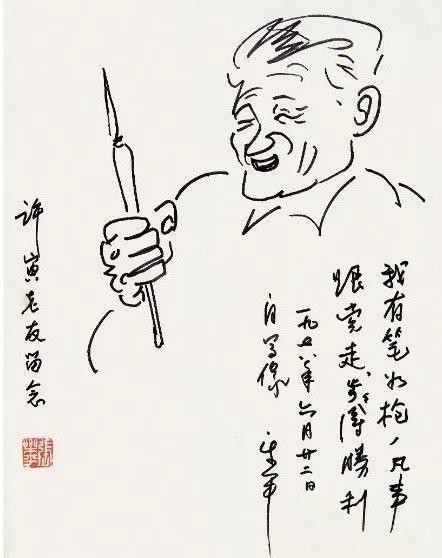 我有笔如枪、凡事
跟党走、步々得勝利
一九七八年六月廿二日
自写像 乐平
许寅老友留念